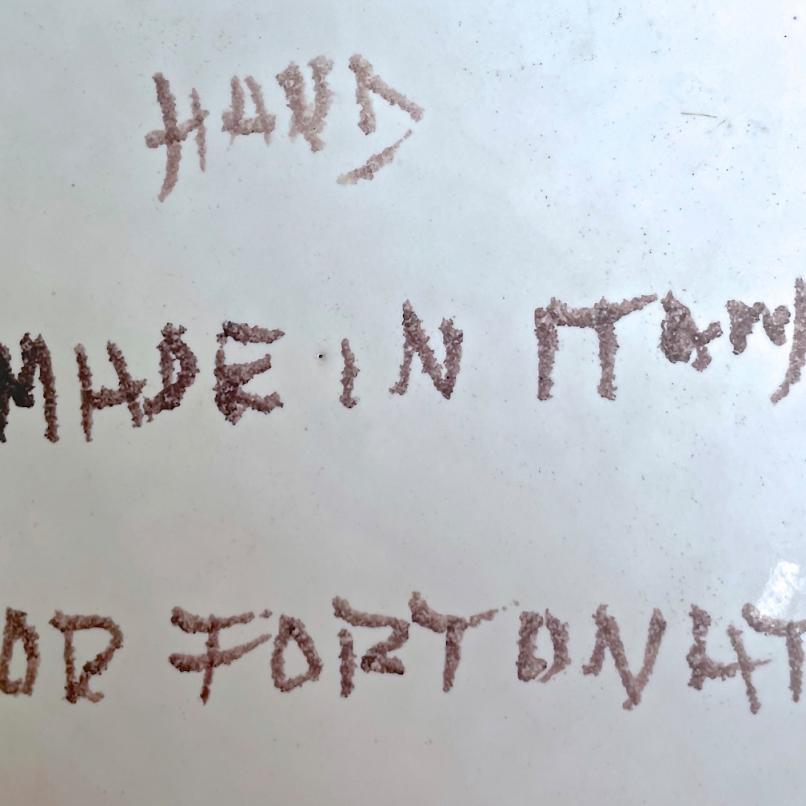 HAND
MADE IN ITALY
OR FORTUNAT